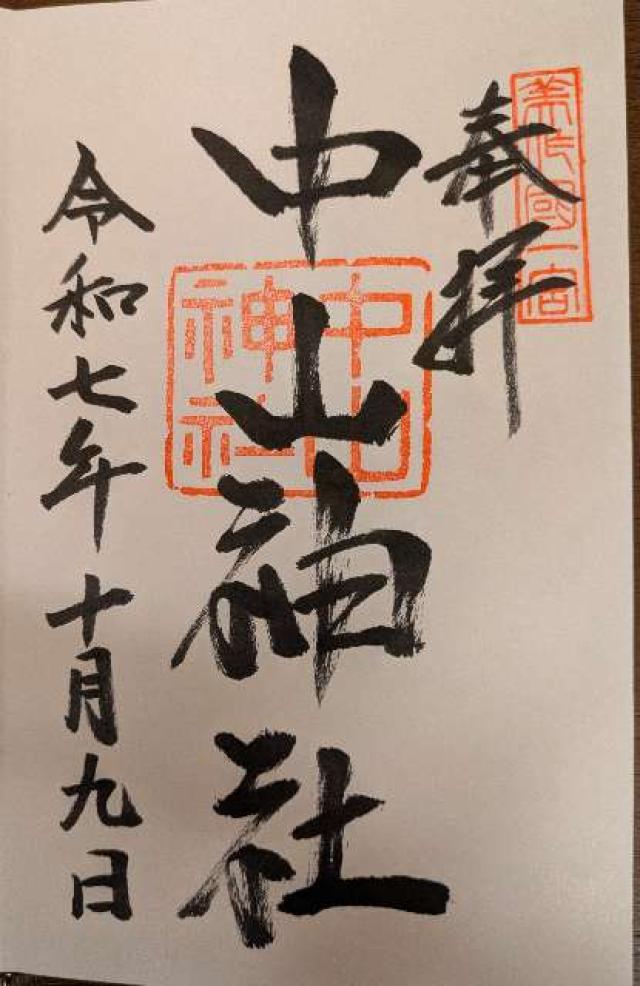 奉拝
美作國一宮
中山神社
中山神社
令和七年十月九日